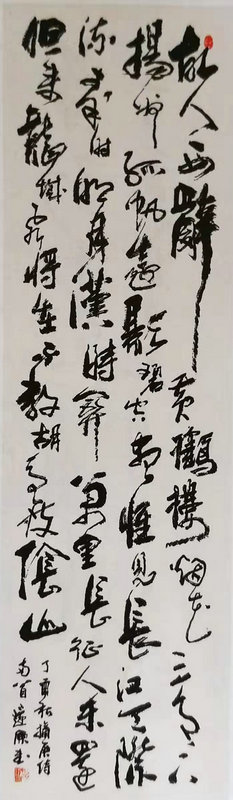 故人西辭黃鶴樓烟花三月下
揚州孤帆遠影碧空盡惟見長江天際
流秦時明月漢時關萬里長征人未還
但使龍城飛將在不教胡馬度陰山
丁酉秋摘唐詩